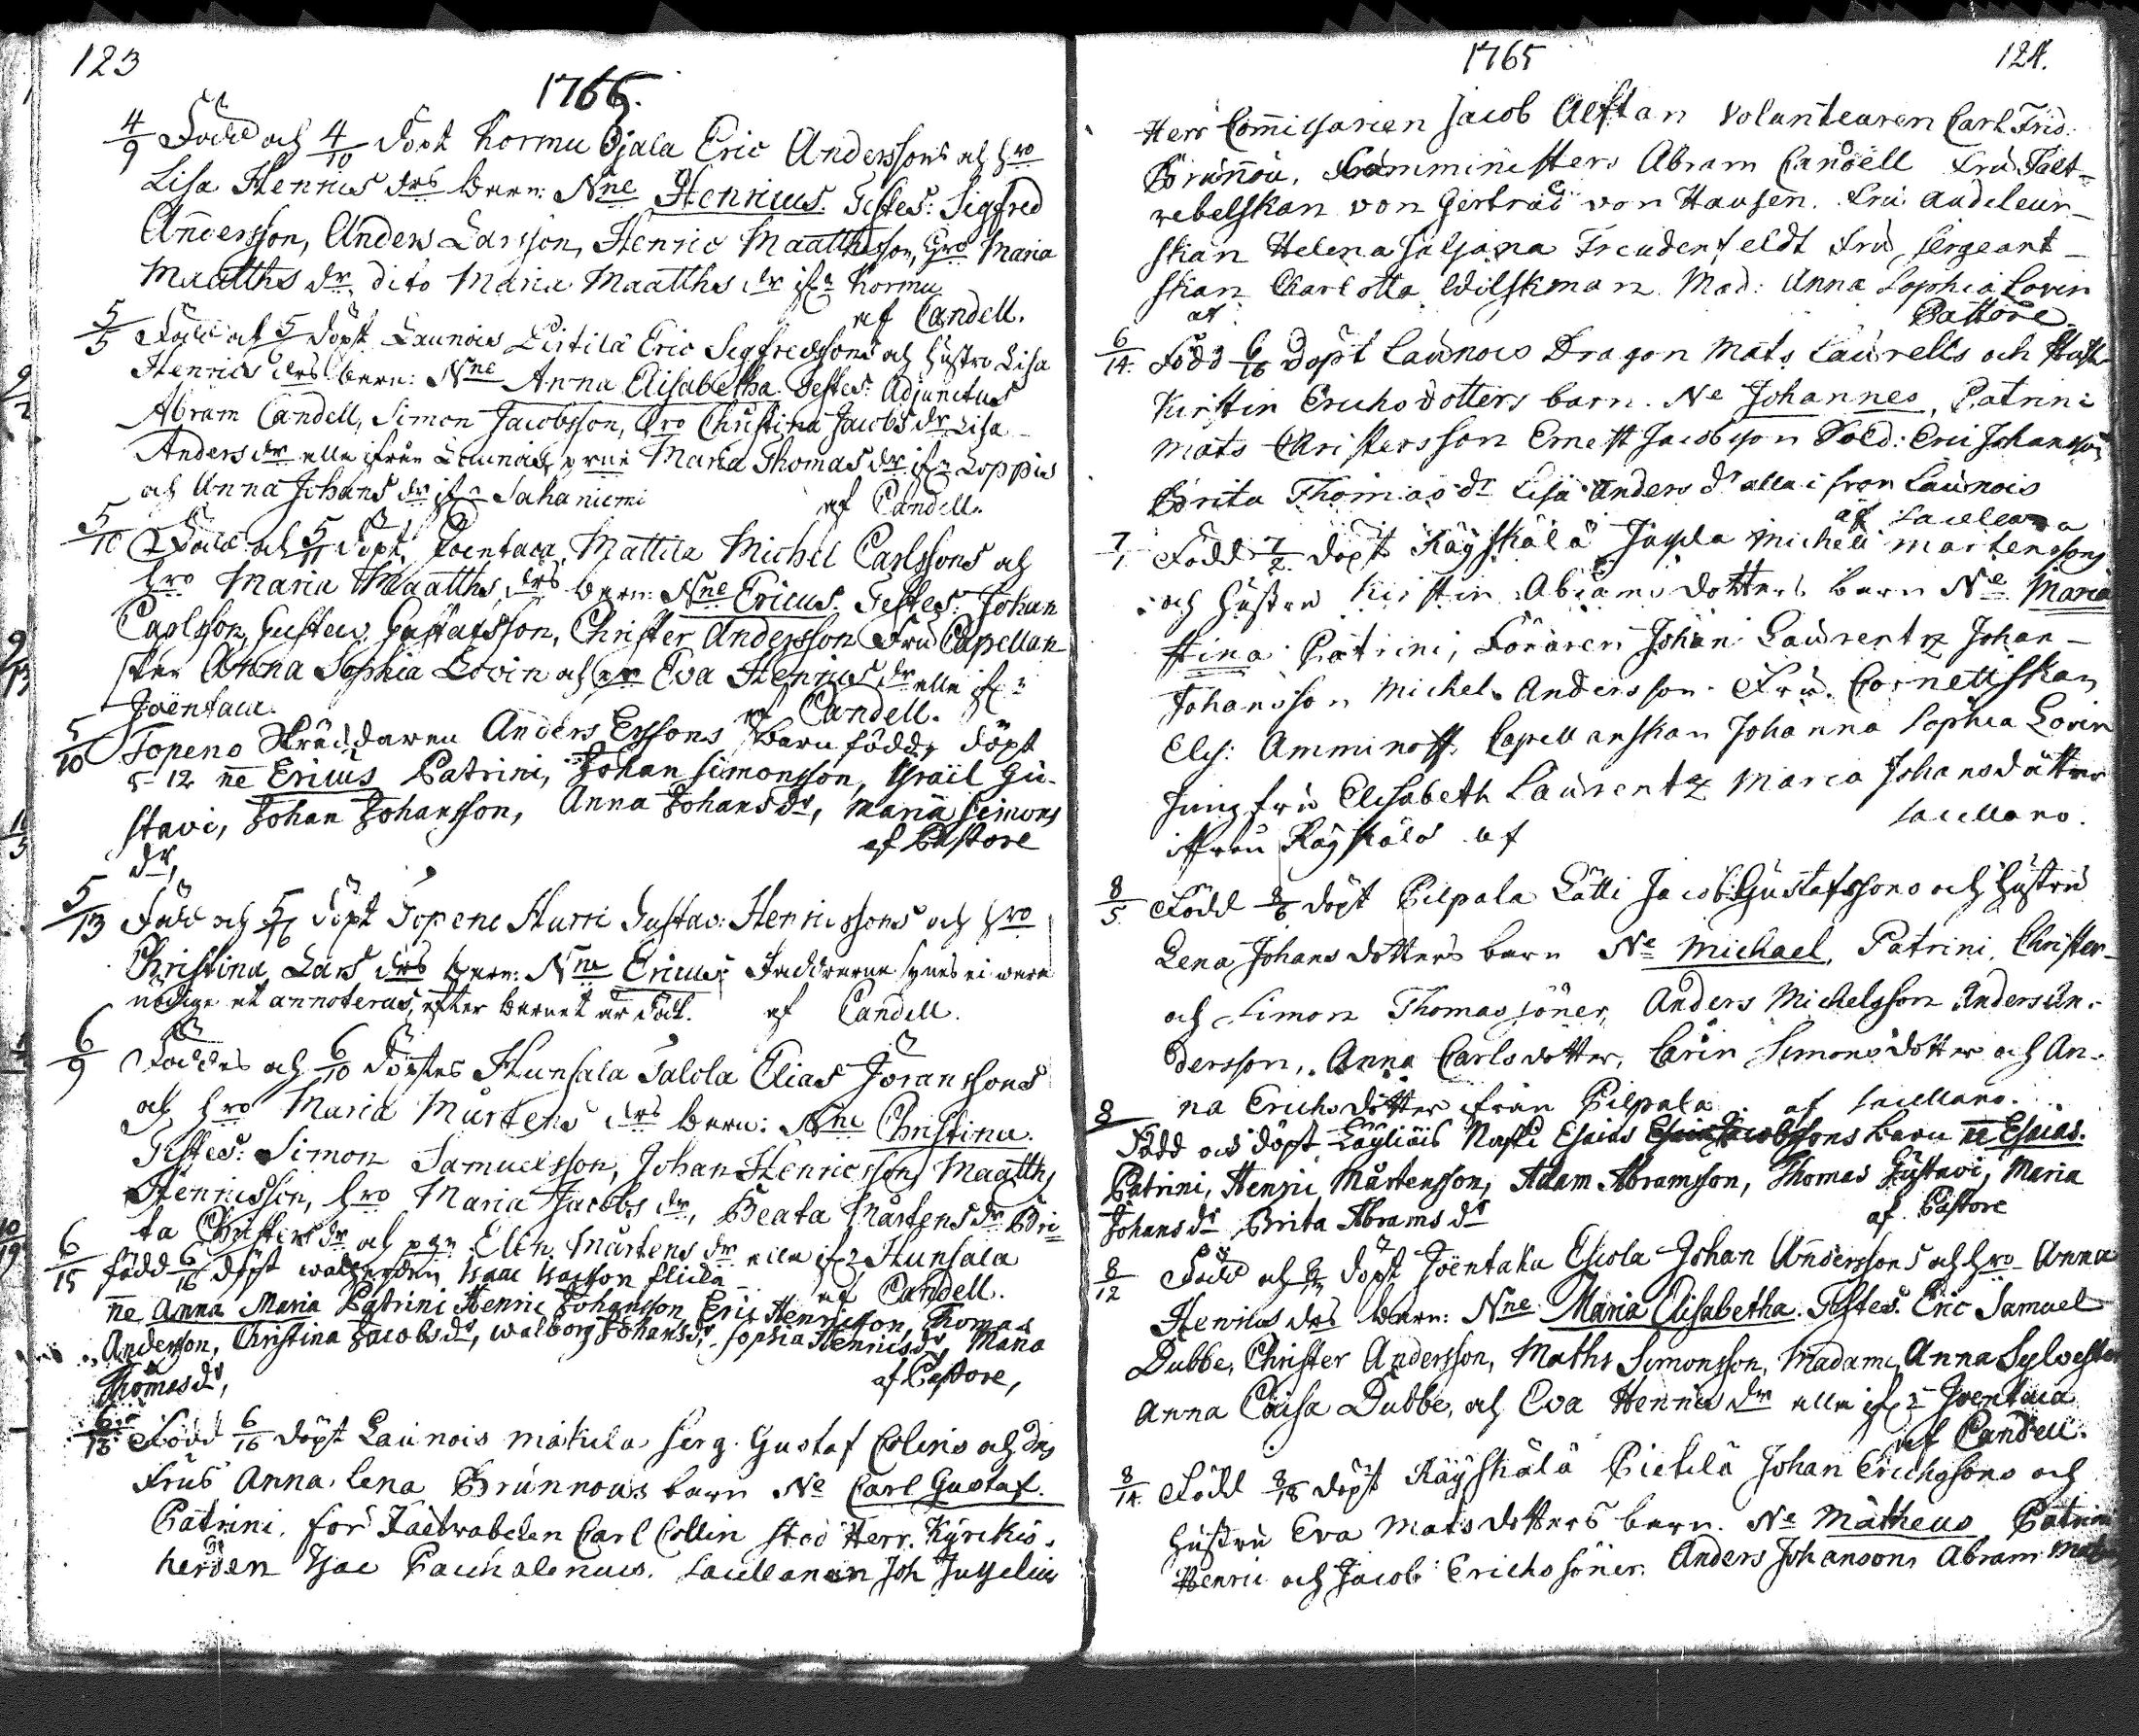 123
1765.
4/9 Född och 4/10 döpt Kormu Ojala Eric Anderssons och hro
Lisa Henrics drs barn: Nne Henricus. Testes: Sigfred
Andersson, Anders Larsson, Henric Maatthsson, hro Maria
Maatths dr, dito Maria Maatths dr ifr: Kormu
af Candell.
5/5 Född och 5 döpt Launois Eric Sigfredssons och hustro Lisa
Henrics drs barn: Nne Anna Elisabetha. Testes: Adjunctus
Abram Candell, Simon Jacobsson, hro Christina Jacobs dr, Lisa
Anders dr alla ifrån Launois, Maria Thomas dr ifr Loppis
och Anna Johans dr ifr Sahaniemi
af Candell.
5/10 Född och 5/11 döpt Joentaca Mattila Michel Carlssons och
hro Maria Maatths drs barn: Nne Ericus. Testes: Johan
Carlsson, Gustav Gustafsson, Christer Andersson Fru Capellan
skan Anna Sophia Lovin och Eva Henrics dr alla ifr:
Joentaca.
af Candell.
5/10 Topeno Skräddaren Anders Erssons barn födde döpt
5-12 ne Ericus Patrini, Johan Simonsson, Israil Gu-
stavi, Johan Johansson, Anna Johans dr, Maria Simons
dr,
af Pastore
5/13 Född och 5 döpt Topeno Hurri Gustav: Henricssons och hro
Christina Lars drs barn: Nne Ericus Faddrarne synes ei wara
nödige at annoteras, efter barnet är dödt. af Candell.
6/9 Föddes och 6/10 döptes Hunsala Talola Elias Joranssons
och hro Maria Mårtens drs barn: Nne Christina.
Testes: Simon Samuelsson, Johan Henricsson, Maatths
Henricsson, hro Maria Jacobs dr, Beata Mårtens dr Bri
ta Christers dr och pgn Elin Mårtens dr alla ifr Hunsala
af Candell.
6/15 född 6/16 döpt Isaac Isacsson flicka
ne Anna Maria Patrini Henric Johansson Eric Henricsson, Thomas
Andersson, Christina Jacobs dr, Walborg Johans dr, Sophia Henrics dr, Maria
Thomas dr,
af Pastore,
6/13 Född 6/16 döpt Launois Mäkilä Serg. Gustaf Colins och des
Frus Anna Lena Brunnous barn Ne Carl Gustaf.
Patrini. för Fältwäbelen Carl Collin stod Herr Kyrkio-
herden Isac Pachalenius. Sacellanen Joh Juselius
1765
124.
Herr Commissarien Jacob Aeftan Volunteuren Carl Frid.
Brunnou, Comministers Abram Candell Fru Fält-
webelskan von Gertrud von Hausen. Fru Auditeur-
skan Helena Juliana Freudenfeldt Fru Sergeant-
skan Charlotta Wilskman. Mad: Anna Sophia Lovin
af
Pastore.
6/14 Född 6/16 döpt Launois Dragon Mats Laurells och Hust
Kirstin Erichsdotters barn. Ne Johannes, Patrini
Mats Christersson Ernest Jacobsson Sold: Eric Johansson
Brita Thomas dr Lisa Anders dr alla ifrån Launois
af Sacellano
7/1 Född 7/2 döpt Räyskälä Juyla Michell Mårtenssons
och Hustru Kirstin Abrams dotters barn Ne Maria
stina Patrini, Föraren Johan Laurentz Johan
Johansson Michel Andersson. Fru Cornettskan
Elis: Amminoff. Capellanskan Johanna Sophia Lovin
Jungfru Elisabeth Laurentz Maria Johansdotter
ifrån Räyskälä af
Sacellano.
8/5 Född 8/6 döpt Pilpala Lätti Jacob Gustafssons och Hustru
Lena Johans dotters barn Ne Michael, Patrini, Christer
och Simon Thomas söner, Anders Michelsson Anders An-
dersson, Anna Carlsdotter, Carin Simons dotter och An-
na Erichs dotter ifrån Pilpala af Sacellano.
8 Född och döpt Läyliäis Nasti Esaias Jacobssons barn ne Esaias.
Patrini, Henric Mårtensson, Adam Abramsson, Thomas Gustavi, Maria
Johans dr Brita Abrams dr
af Pastore
8/12 Född och 8 döpt Joentaka Eskola Johan Anderssons och hro Anna
Henrics drs barn: Nne Maria Elisabetha. Testes: Eric Samuel
Dubbe, Christer Andersson, Maths Simonsson, Madame Anna Sylvester
Anna Caisa Dubbe, och Eva Henrics dr alla ifr: Joentaca
af Candell.
8/14 Född 8/18 döpt Räyskälä Pietilä Johan Erichssons och
Hustru Eva Matsdotters barn. Ne Mätheus, Patrini
Henric och Jacob Erichs söner. Anders Johansons Abram